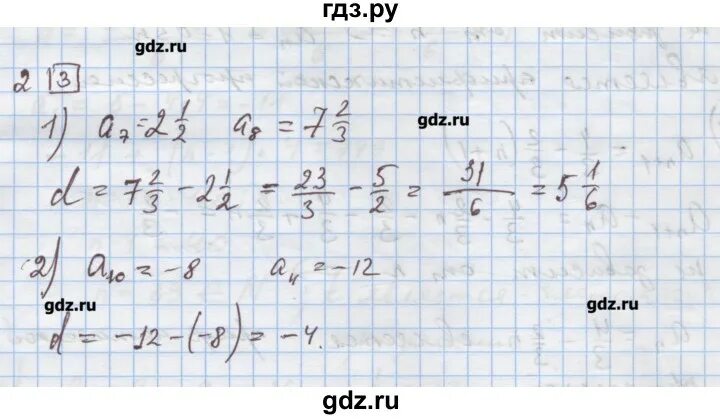 гдз.ру
gdz.ru
2 3
1) a₇ = 2 1/2 a₈ = 7 2/3
gdz.ru
d = 7 2/3 − 2 1/2 = 23/3 − 5/2 = 31/6 = 5 1/6
2) a₁₀ = −8 a₁₁ = −12
gdz.ru
gdz.ru
d = −12 − (−8) = −4.
gdz.ru